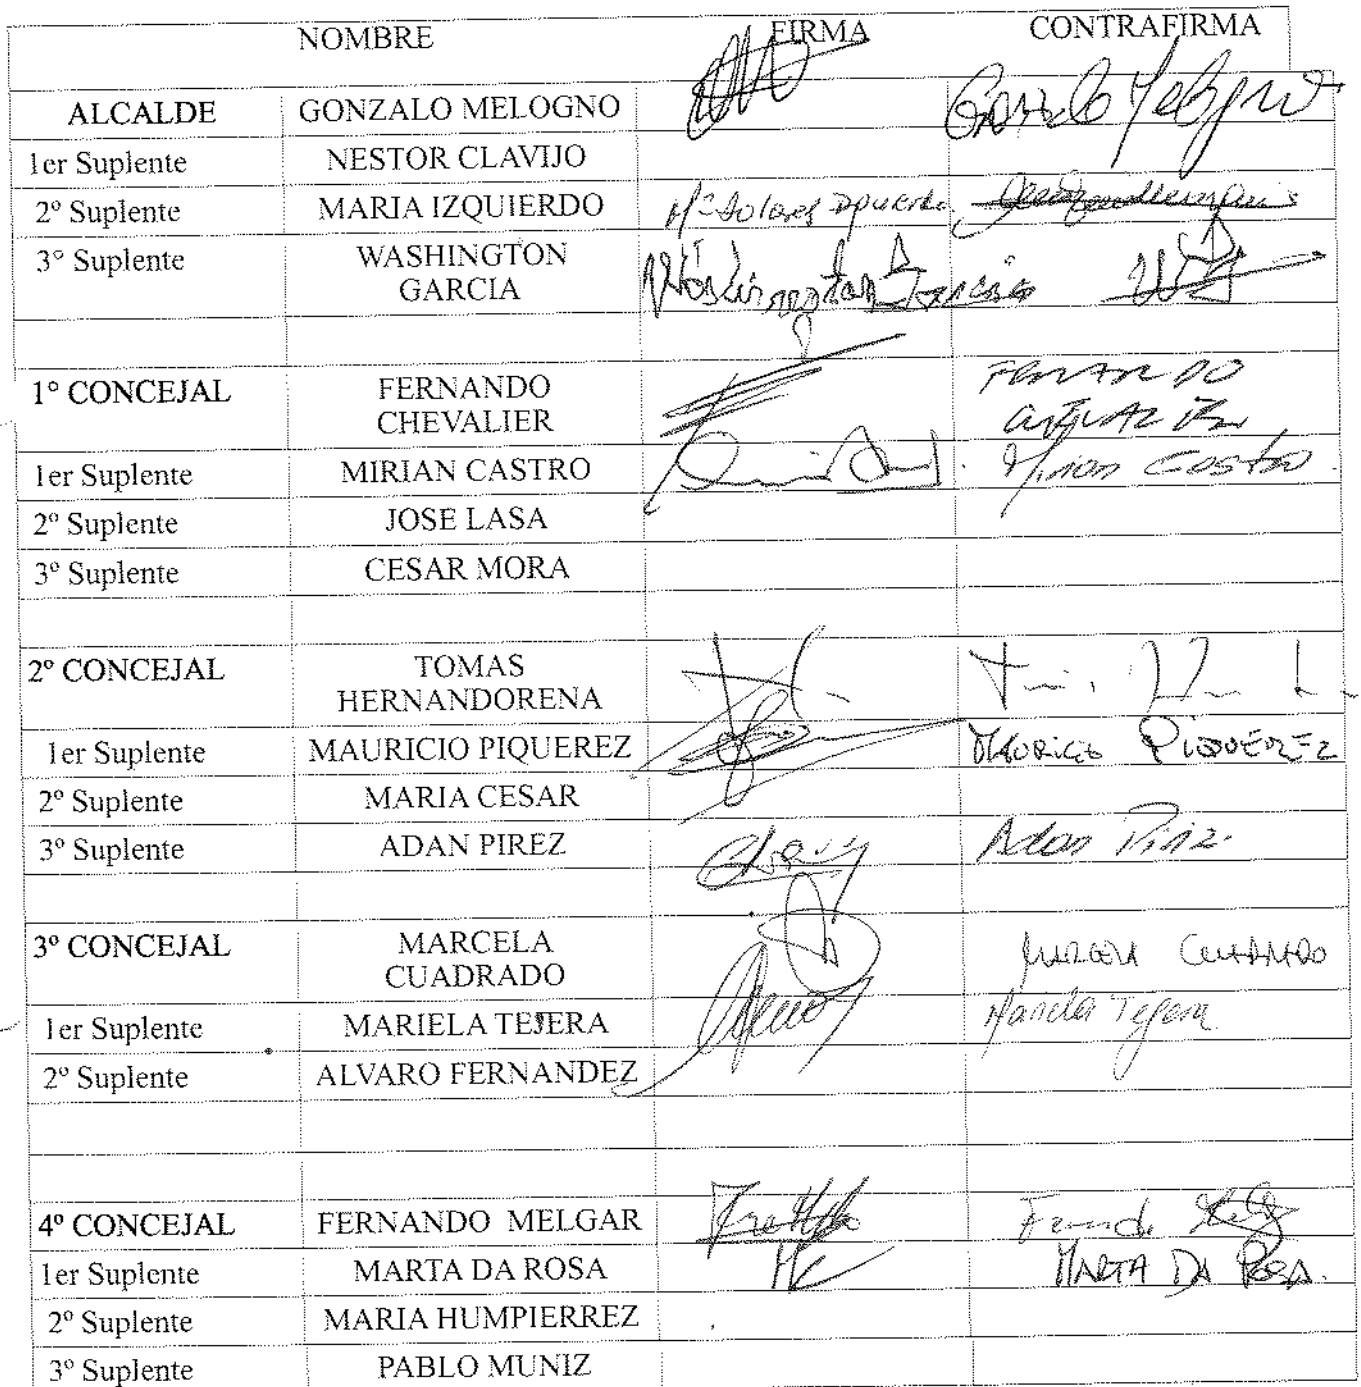 NOMBRE FIRMA CONTRAFIRMA
ALCALDE GONZALO MELOGNO Gonzalo Melogno
1er Suplente NESTOR CLAVIJO
2º Suplente MARIA IZQUIERDO Mª Dolores
3º Suplente WASHINGTON
GARCIA Washington Garcia
1º CONCEJAL FERNANDO FERNANDO
CHEVALIER CHEVALIER
1er Suplente MIRIAN CASTRO Mirian Castro
2º Suplente JOSE LASA
3º Suplente CESAR MORA
2º CONCEJAL TOMAS
HERNANDORENA
1er Suplente MAURICIO PIQUEREZ MAURICIO PIQUEREZ
2º Suplente MARIA CESAR
3º Suplente ADAN PIREZ Adan Piriz
3º CONCEJAL MARCELA MARCELA CUADRADO
CUADRADO
1er Suplente MARIELA TEJERA Mariela Tejera
2º Suplente ALVARO FERNANDEZ
4º CONCEJAL FERNANDO MELGAR
1er Suplente MARTA DA ROSA MARTA DA ROSA.
2º Suplente MARIA HUMPIERREZ
3º Suplente PABLO MUNIZ